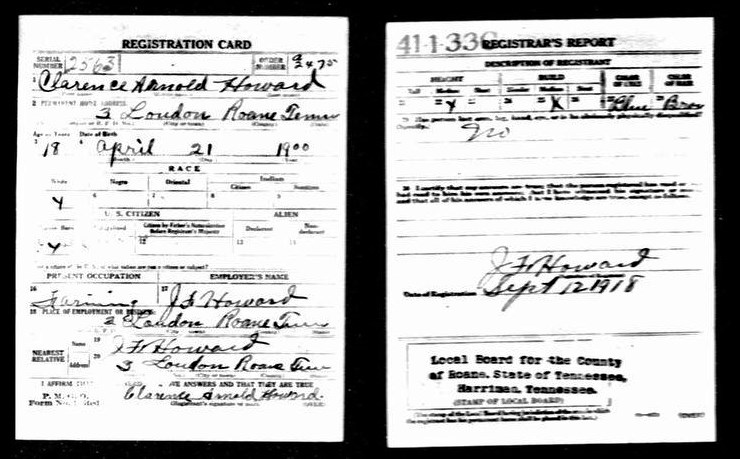 REGISTRATION CARD
SERIAL NUMBER 2563 ORDER NUMBER
1 Clarence Arnold Howard
2 PERMANENT HOME ADDRESS:
3 Loudon Roane Tenn
Age in Years Date of Birth
18 April 21 1900
RACE
White Negro Oriental Indian
Citizen
U. S. CITIZEN ALIEN
Citizen by Father's Naturalization Before Registrant's Majority Declarant Non-declarant
PRESENT OCCUPATION EMPLOYER'S NAME
Farming J F Howard
PLACE OF EMPLOYMENT OR BUSINESS
Loudon Roane Tenn
NEAREST RELATIVE Name
Address
Howard
3 Loudon Roane Tenn
I AFFIRM ANSWERS AND THAT THEY ARE TRUE
P. M. G. O.
Form No. 1
Clarence Arnold Howard
41-1-33 C REGISTRAR'S REPORT
DESCRIPTION OF REGISTRANT
HEIGHT BUILD COLOR OF EYES COLOR OF HAIR
Tall Medium Short Slender Medium Stout
Blue Brow
29 Has person lost arm, leg, hand, eye, or is he obviously physically disqualified?
No
30 I certify that my answers are true; that the person registered has read or
had read to him his own answers; that I have witnessed his signature or mark
and that all of his answers of which I have knowledge are true, except as follows:
Howard
Date of Registration Sept 12 1918
Local Board for the County
of Roane, State of Tennessee,
Harriman, Tennessee.
(STAMP OF LOCAL BOARD)
(The stamp of the Local Board having jurisdiction of the area in which
the registrant has his permanent home shall be placed in this box.)